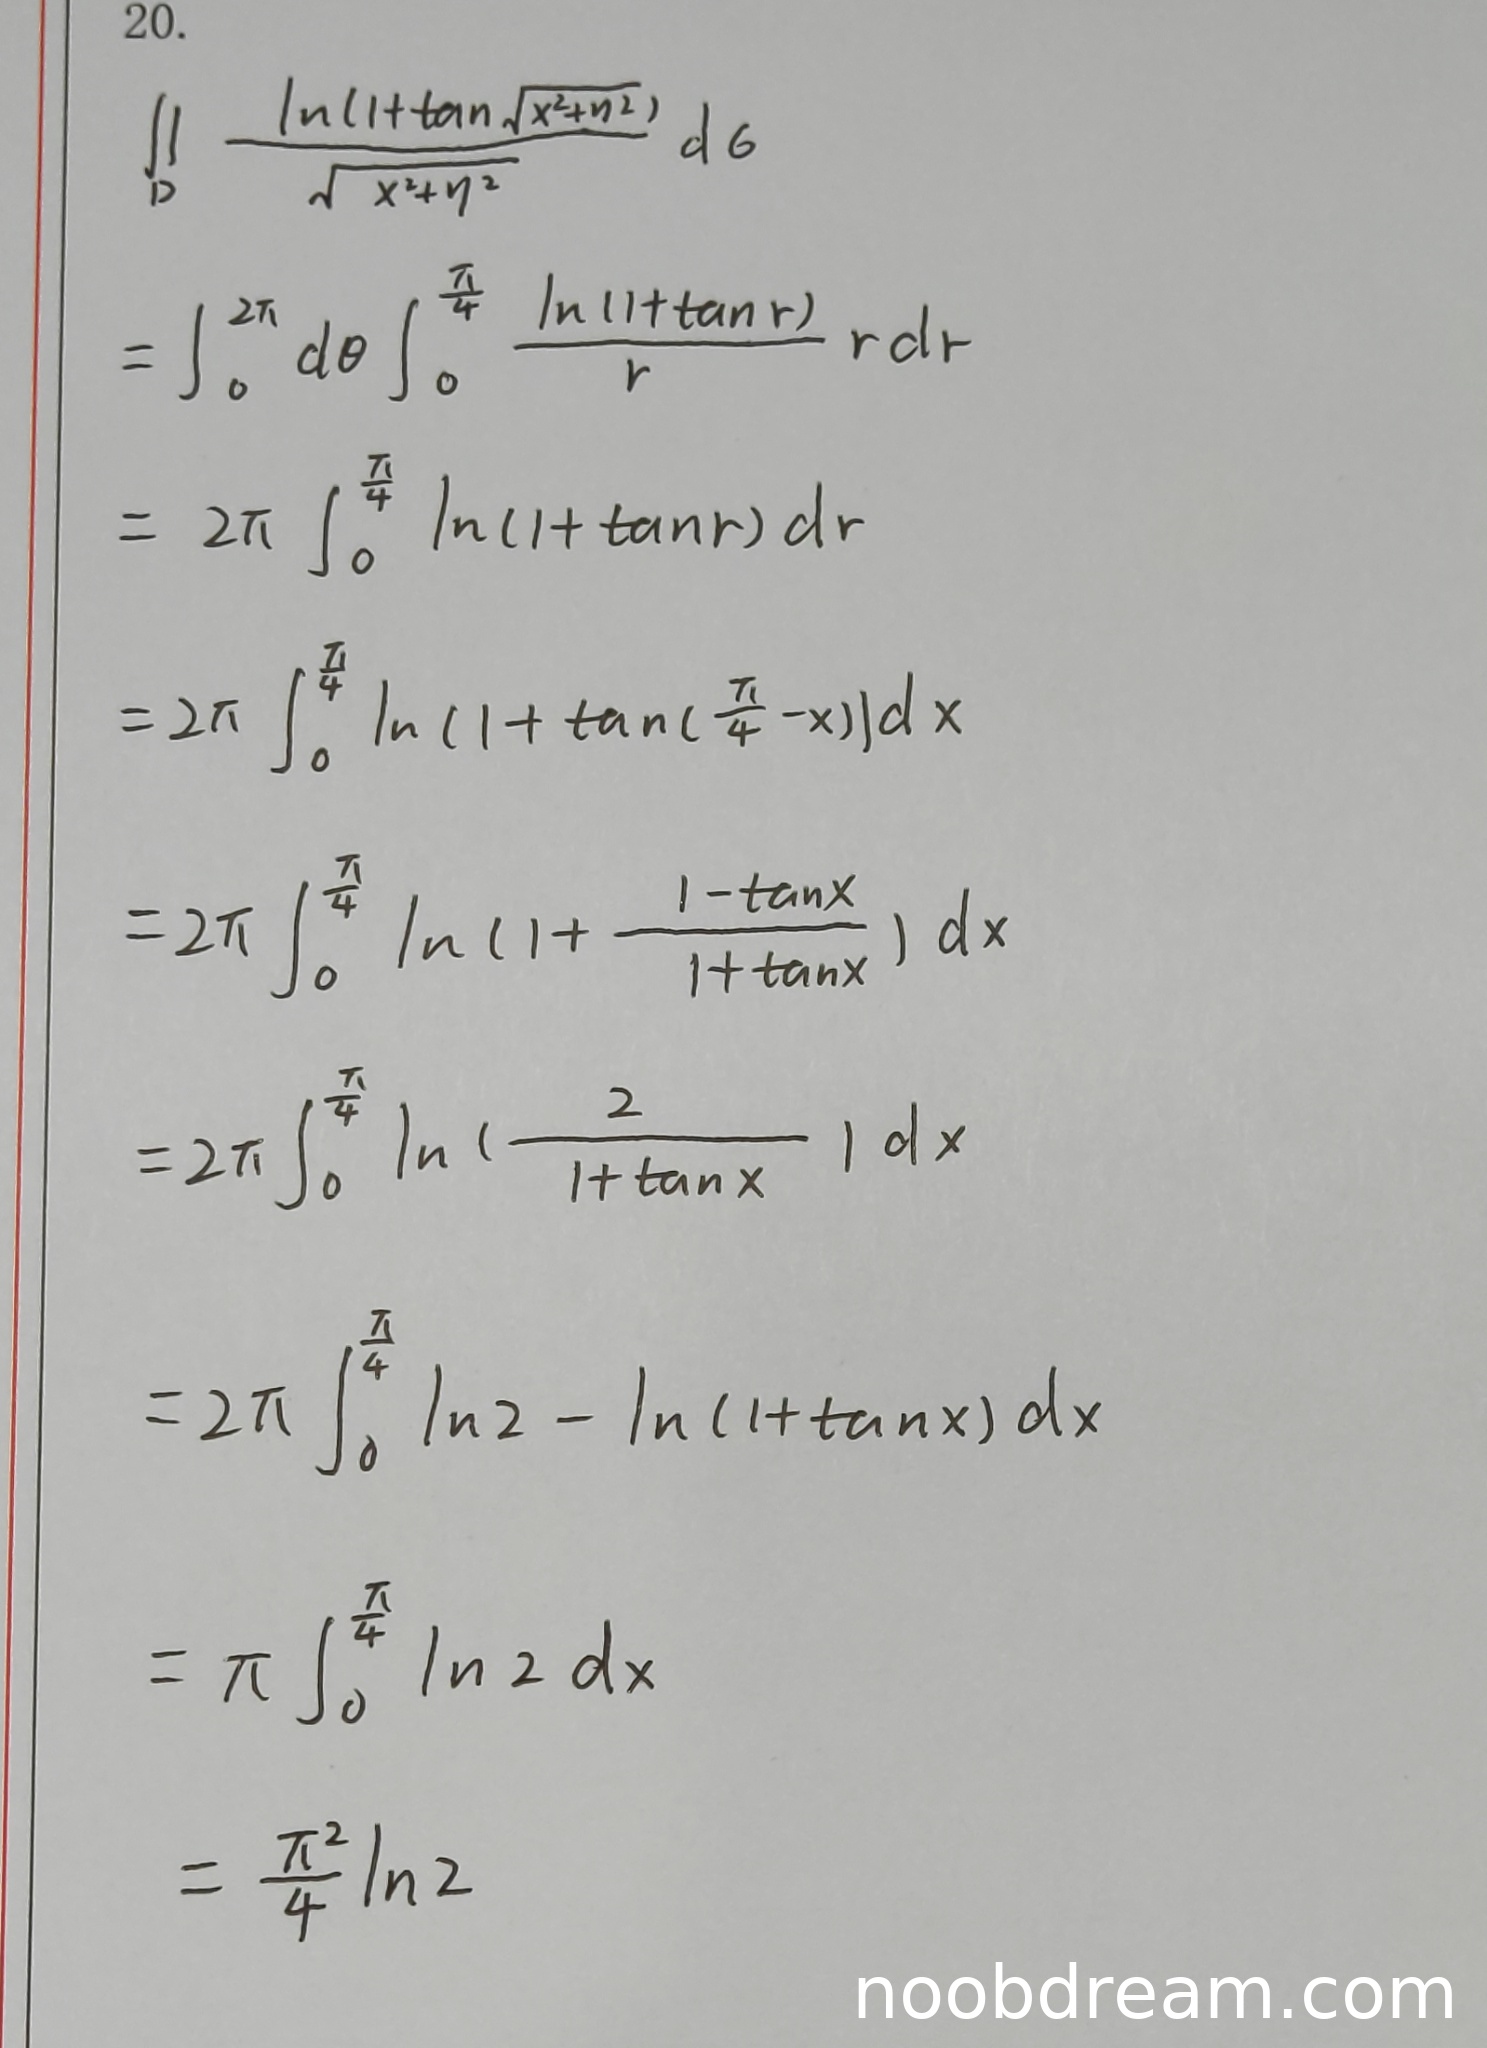 20.
∬_D \frac{ln(1+tan\sqrt{x²+y²})}{\sqrt{x²+y²}} dσ
= ∫_0^{2π} dθ ∫_0^{\frac{π}{4}} \frac{ln(1+tanr)}{r} rdr
= 2π ∫_0^{\frac{π}{4}} ln(1+tanr)dr
= 2π ∫_0^{\frac{π}{4}} ln(1+tan(\frac{π}{4}-x))dx
= 2π ∫_0^{\frac{π}{4}} ln(1+\frac{1-tanx}{1+tanx})dx
= 2π ∫_0^{\frac{π}{4}} ln(\frac{2}{1+tanx})dx
= 2π ∫_0^{\frac{π}{4}} ln2 - ln(1+tanx)dx
= π ∫_0^{\frac{π}{4}} ln2 dx
= \frac{π²}{4} ln2
noobdream.com